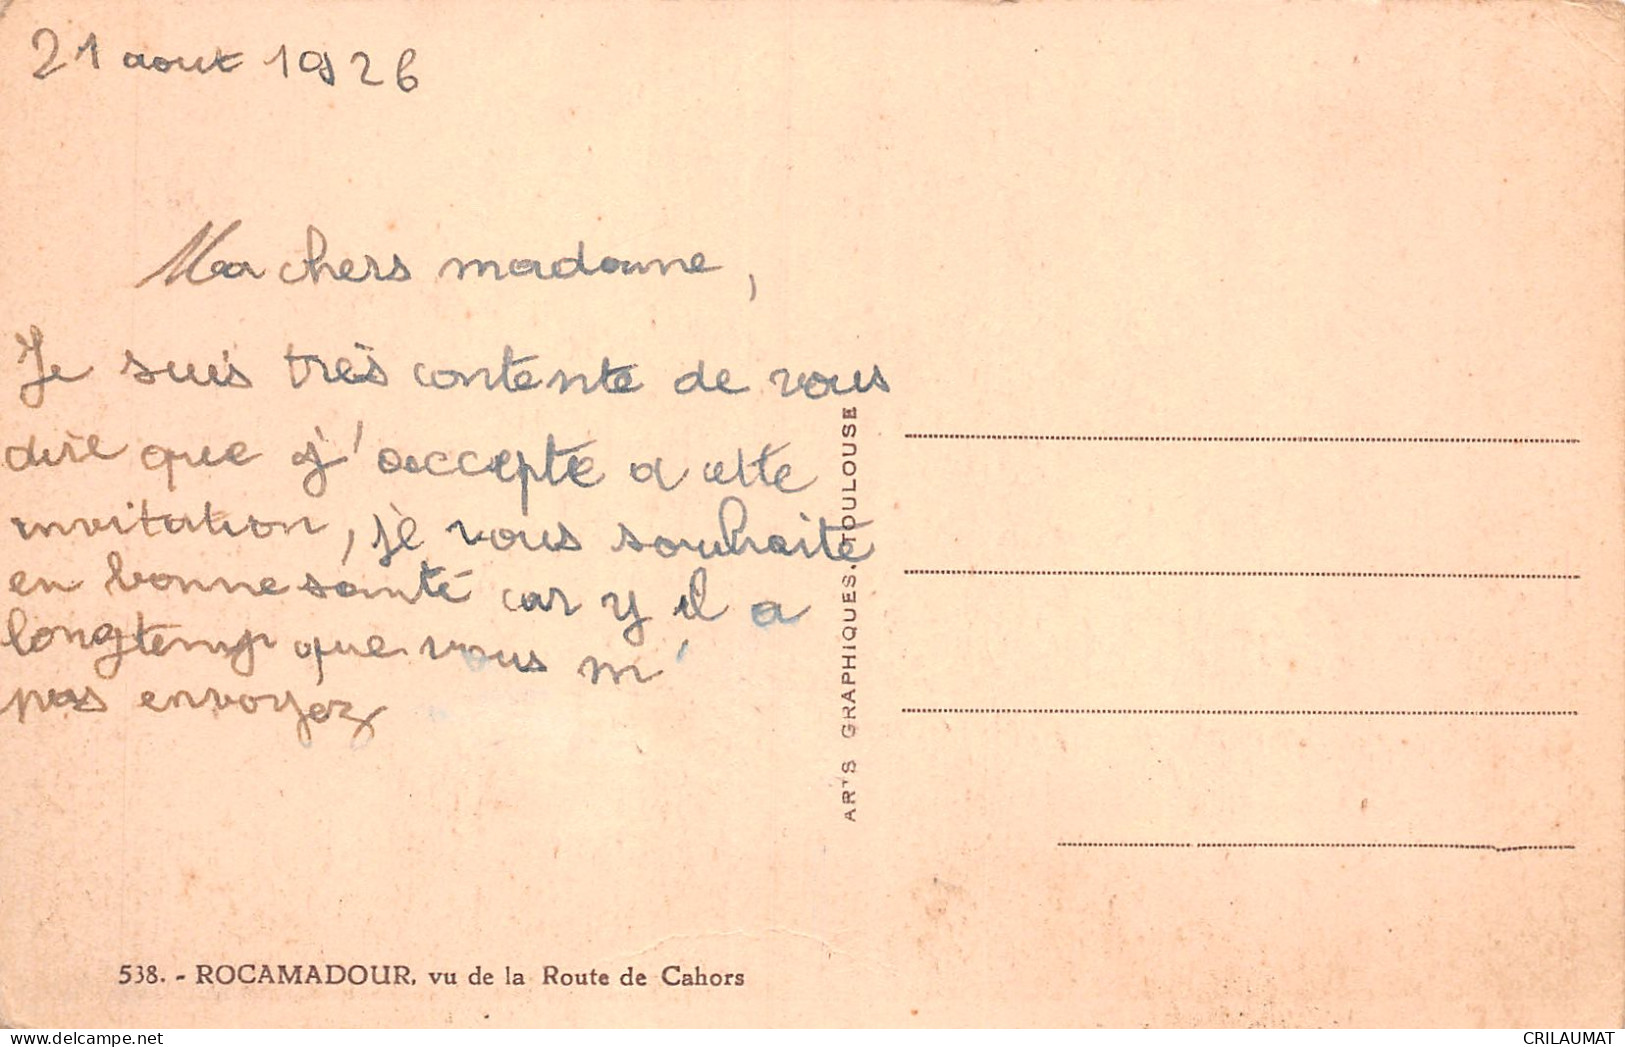 21 aout 1926
Ma chers madame,
Je suis très contente de vous
dire que j'accepte a cette
invitation, je vous souhaite
en bonne santé car y il a
longtemp que vous m'
pas envoyez
AR'S GRAPHIQUES. TOULOUSE
538. - ROCAMADOUR, vu de la Route de Cahors
CRILAUMAT